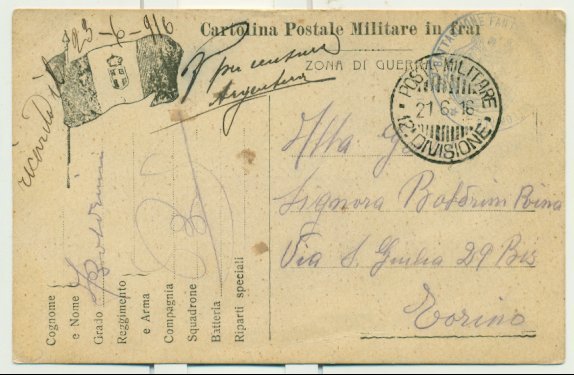 Cartolina Postale Militare in fran
ZONA DI GUERRA
ricevuta il 23-6-916
P per censura
Argentero
POSTA MILITARE
21.6.16
12ª DIVISIONE
Alla
Signora Boldrini
Via S. Giulia 29 Bis
Torino
Cognome
e Nome Boldrini
Grado
Reggimento
e Arma
Compagnia
Squadrone
Batteria
Riparti speciali